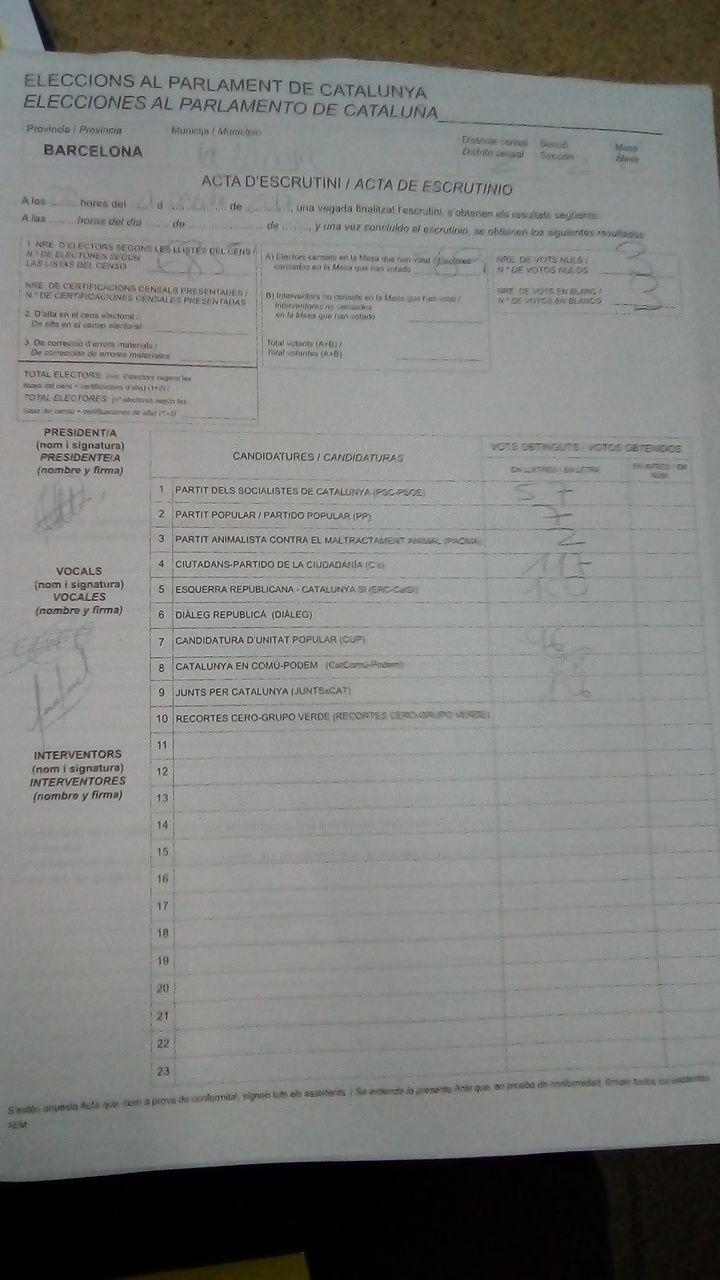 ELECCIONS AL PARLAMENT DE CATALUNYA
ELECCIONES AL PARLAMENTO DE CATALUÑA
Provincia / Provincia Municipi / Municipio Districte censal Secció Mesa
BARCELONA Distrito censal Sección Mesa
ACTA D'ESCRUTINI / ACTA DE ESCRUTINIO
A les ........ hores del d de ........, una vegada finalitzat l'escrutini, s'obtenen els resultats següents:
A las ........ horas del día ...... de ........ de ........, y una vez concluido el escrutinio, se obtienen los siguientes resultados
1. NRE. D'ELECTORS SEGONS LES LLISTES DEL CENS /
N.º DE ELECTORES SEGÚN
LAS LISTAS DEL CENSO
NRE. DE CERTIFICACIONS CENSALS PRESENTADES /
N.º DE CERTIFICACIONES CENSALES PRESENTADAS
2. D'alta en el cens electoral /
De alta en el censo electoral
3. De correcció d'errors materials /
De corrección de errores materiales
TOTAL ELECTORS: (nre. d'electors segons les
llistes del cens + certificacions d'alta) (1+2) /
TOTAL ELECTORES: (nº electores según las
listas del censo + certificaciones de alta) (1+2)
A) Electors censats en la Mesa que han votat / Electores
censados en la Mesa que han votado
B) Interventors no censats en la Mesa que han votat /
Interventores no censados
en la Mesa que han votado
Total votants (A+B) /
Total votantes (A+B)
NRE. DE VOTS NULS / 3
N.º DE VOTOS NULOS
NRE. DE VOTS EN BLANC / 3
N.º DE VOTOS EN BLANCO
PRESIDENT/A
(nom i signatura)
PRESIDENTE/A
(nombre y firma)
VOCALS
(nom i signatura)
VOCALES
(nombre y firma)
INTERVENTORS
(nom i signatura)
INTERVENTORES
(nombre y firma)
CANDIDATURES / CANDIDATURAS VOTS OBTINGUTS / VOTOS OBTENIDOS
EN LLETRES / EN LETRA EN XIFRES / EN NÚM.
1 PARTIT DELS SOCIALISTES DE CATALUNYA (PSC-PSOE) 57
2 PARTIT POPULAR / PARTIDO POPULAR (PP) 7
3 PARTIT ANIMALISTA CONTRA EL MALTRACTAMENT ANIMAL (PACMA) 2
4 CIUTADANS-PARTIDO DE LA CIUDADANÍA (C's) 115
5 ESQUERRA REPUBLICANA - CATALUNYA SÍ (ERC-CatSí)
6 DIÀLEG REPUBLICÀ (DIÀLEG)
7 CANDIDATURA D'UNITAT POPULAR (CUP)
8 CATALUNYA EN COMÚ-PODEM (CatComú-Podem)
9 JUNTS PER CATALUNYA (JUNTSxCAT)
10 RECORTES CERO-GRUPO VERDE (RECORTES CERO-GRUPO VERDE)
11
12
13
14
15
16
17
18
19
20
21
22
23
S'estén aquesta Acta que, com a prova de conformitat, signen tots els assistents. / Se extiende la presente Acta que, en prueba de conformidad, firman todos los asistentes.